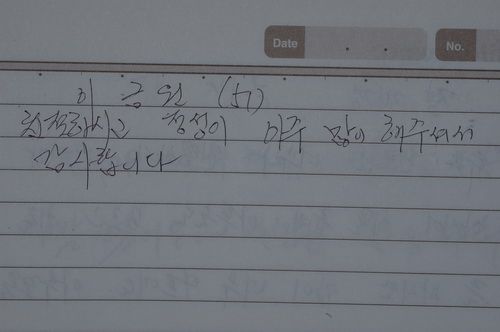 Date . .
No.
이 긍 원 (妣)
친절하시고 정성이 아주 많이 해주셔서
감사합니다